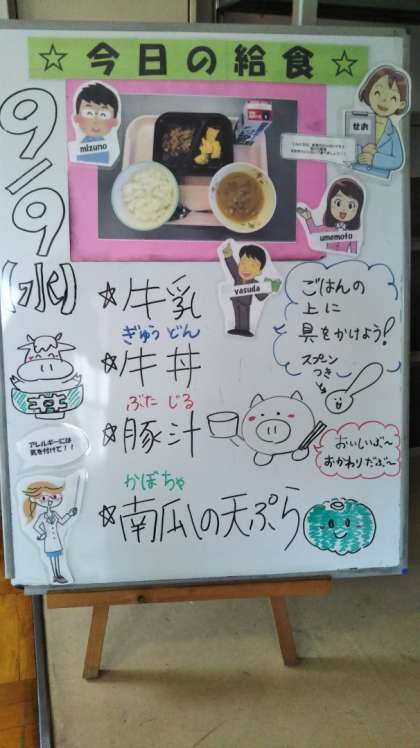 ☆今日の給食☆
9/9
(水)
mizuno
せお
umemoto
yasuda
☆牛乳
ぎゅうどん
☆牛丼
ぶたじる
☆豚汁
かぼちゃ
☆南瓜の天ぷら
ごはんの
上に
具をかけよう!
スプーン
つき
おいしいぶ～
おかわりだぶ～
アレルギーには
気を付けて!!